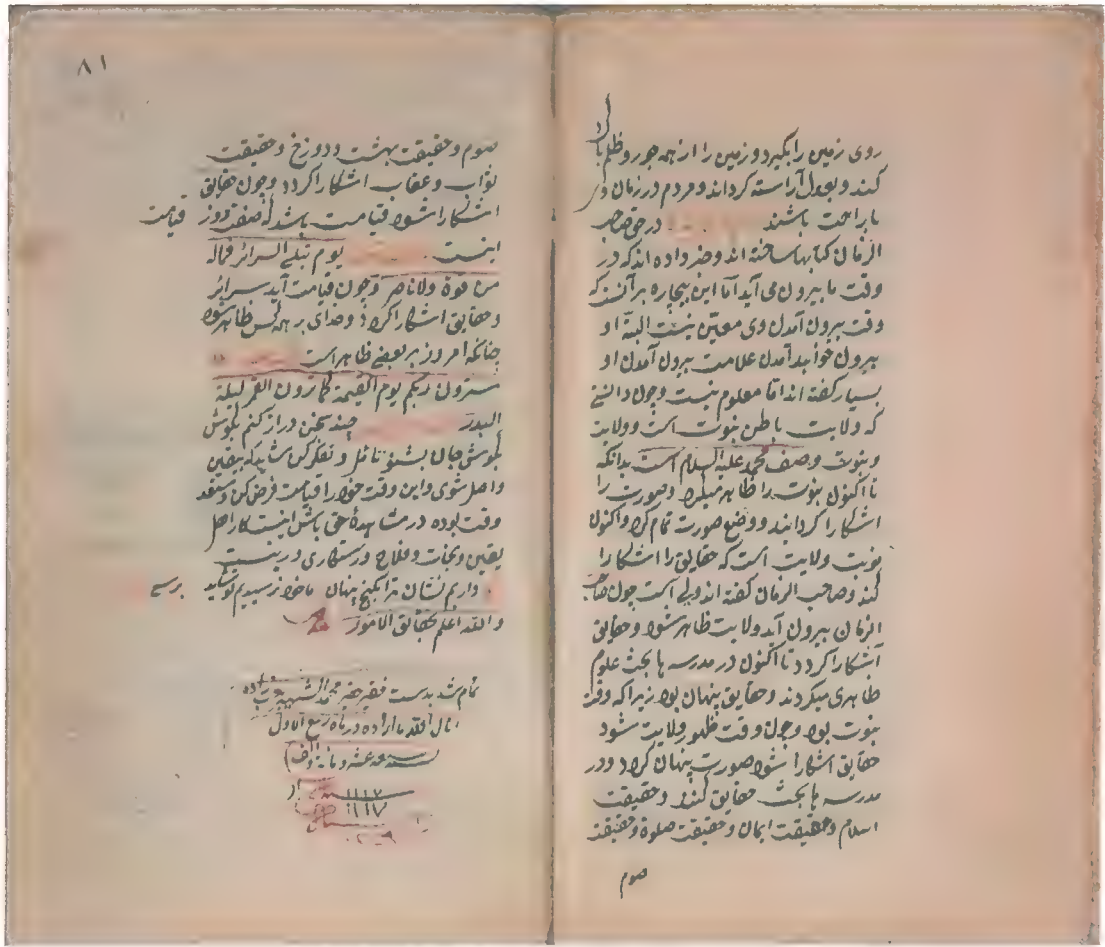 روی زمین را بگیرد و زمین را از همه جور و ظلم پاک
کند و بعدل آراسته کرداند و مردم در زمان وی
با راحت باشند در حق صاحب
الزمان کتابها ساخته اند و خبر داده اند که در
وقت ما بیرون می آید اما این بیچاره بر آنست که
وقت بیرون آمدن وی معین نیست البته او
بیرون خواهد آمدن علامت بیرون آمدن او
بسیار کفته اند اما معلوم نیست و چون دانستی
که ولایت باطن نبوت است و ولایت
و نبوت وصف محمد علیه السلام است بدانکه
تا اکنون نبوت را ظاهر میکرد و صورت را
اشکارا کردانید و وضع صورت تمام کرد و اکنون
نوبت ولایت است که حقایق را اشکارا
کند و صاحب الزمان کفته اند ولی است چون صاحب
الزمان بیرون آید ولایت ظاهر شود و حقایق
آشکارا کردد تا اکنون در مدرسه ها بحث علوم
ظاهری میکردند و حقایق پنهان بود زیرا که وقت
نبوت بود و چون وقت ظهور ولایت شود
حقایق اشکارا شود صورت پنهان کردد و در
مدرسه ها بحث حقایق کنند و حقیقت
اسلام و حقیقت ایمان و حقیقت صلوة و حقیقت
صوم
۸۱
صوم و حقیقت بهشت و دوزخ و حقیقت
ثواب و عقاب اشکارا کردد و چون حقایق
اشکارا شود قیامت باشد صفت روز قیامت
اینست یوم تبلی السرائر فماله
من قوة ولا ناصر و چون قیامت آید سرائر
و حقایق اشکارا کردد و خدای بر همه کس ظاهر شود
چنانکه امروز بر بعضی ظاهر است
سترون ربکم یوم القیمة کما ترون القمر لیلة
البدر چند سخن دراز کنم بکوش
بکوش جان بشنو تأمل و تفکر کن شاید که بیقین
واصل شوی و این وقت خود را قیامت فرض کن و مستعد
وقت بوده در مشاهدهٔ حق باش اینست کار اهل
یقین و نجات و فلاح و رستکاری درینست
داریم نشان ترا بکنج پنهان ما خود نرسیدیم تو شاید برسی
والله اعلم بحقائق الامور
تمام شد بدست فقیر محمد الشهیر
انال الله ما اراده در ماه ربیع الاول
سنه سبع عشر و مائة و الف
۱۱۱۷
۱۱۱۷